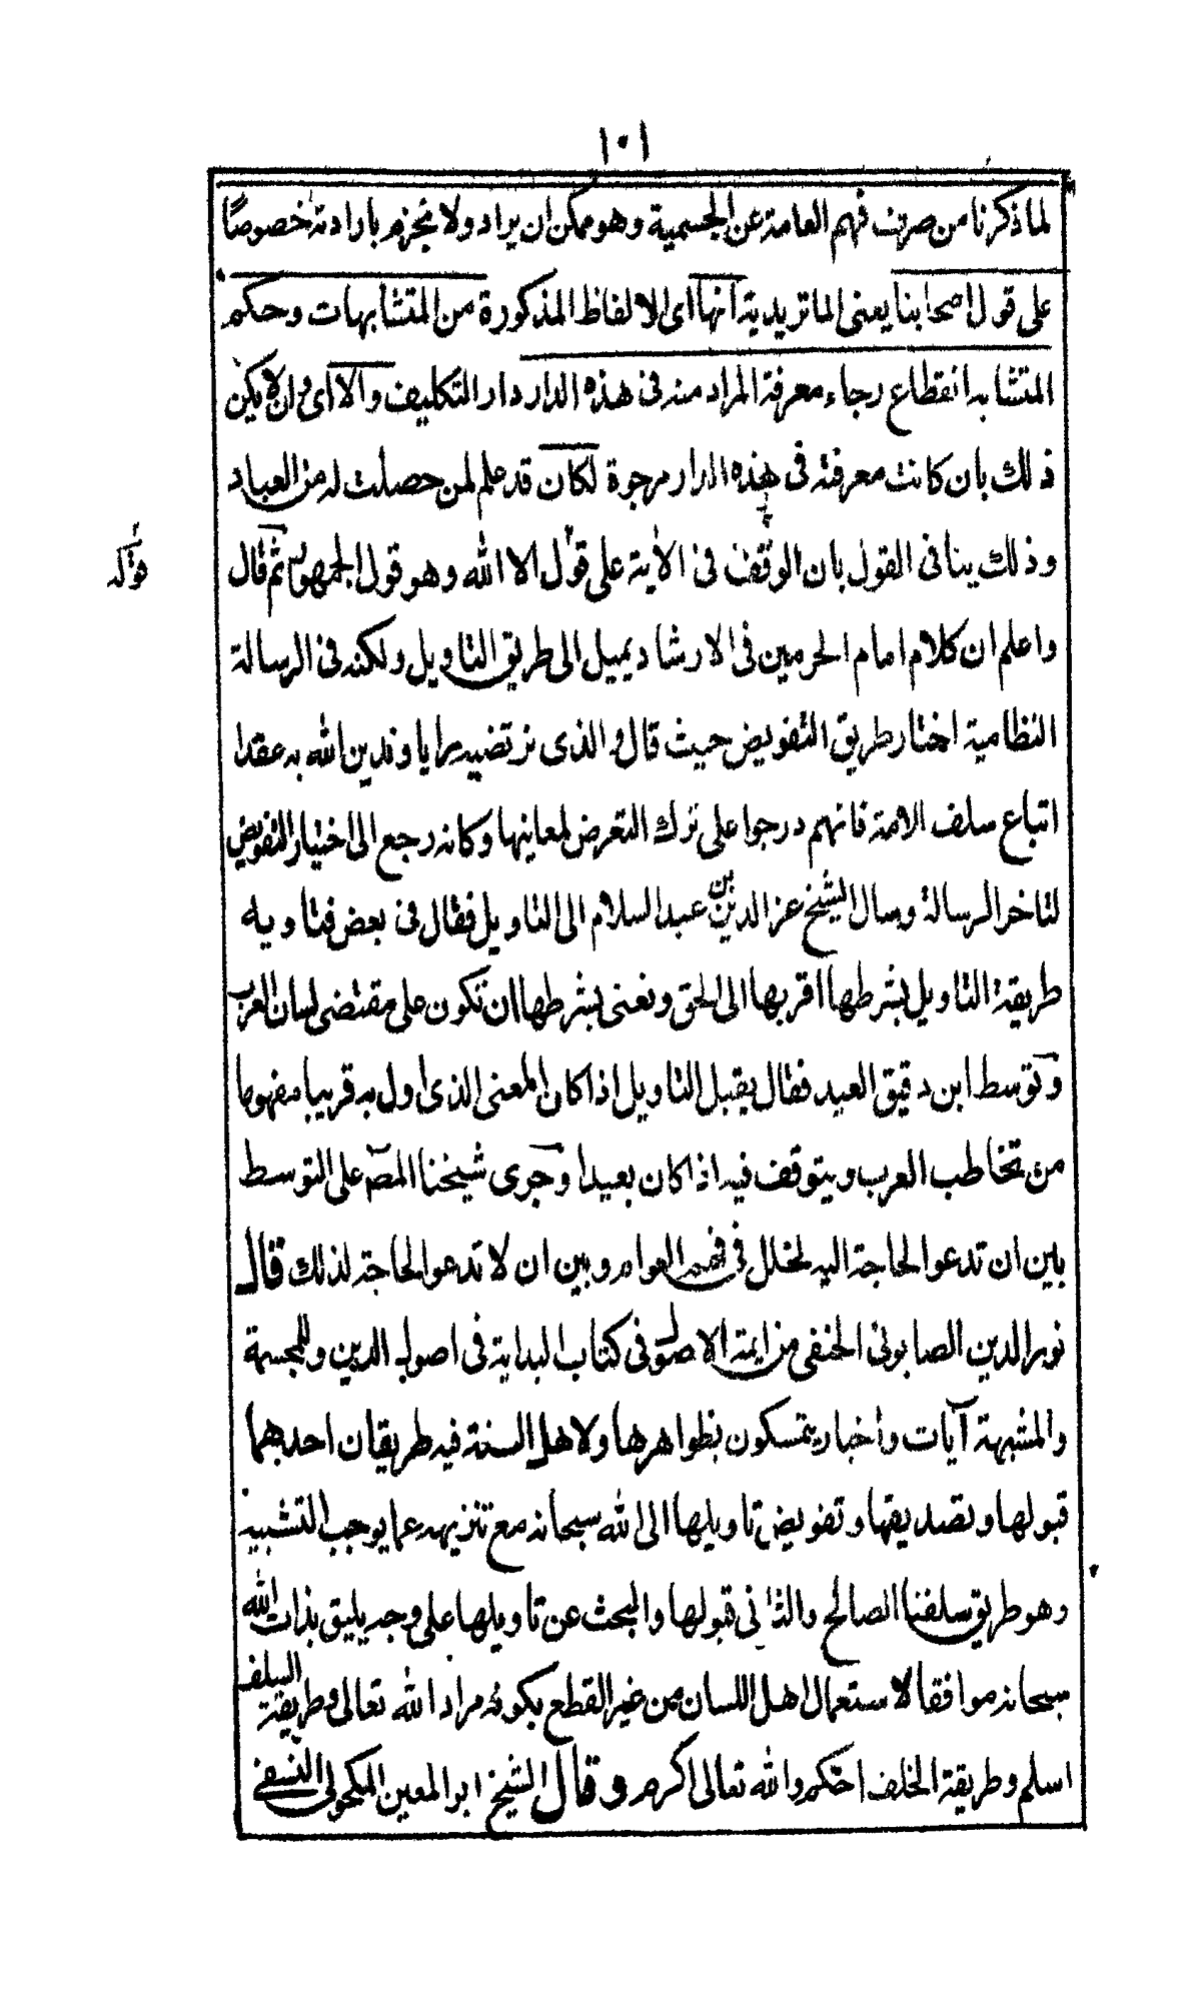 ١٠١
لما ذكرنا من صرف فهم العامة عن الجسمية وهو ممكن ان يراد ولا نجزم بارادته خصوصًا
على قول اصحابنا يعنى الماتريدية انها اى الالفاظ المذكورة من المتشابهات وحكم
المتشابه انقطاع رجاء معرفة المراد منه فى هذه الدار دار التكليف والا اى وان لا يكن
ذلك بان كانت معرفته فى هذه الدار مرجوة لكان قد علم لمن حصلت له من العباد
وذلك ينافى القول بان الوقف فى الآية على قوله الا الله وهو قول الجمهور ثم قال
قوله
واعلم ان كلام امام الحرمين فى الارشاد يميل الى طريق التاويل ولكنه فى الرسالة
النظامية اختار طريق التفويض حيث قال والذى نرتضيه رايا وندين الله به عقدا
اتباع سلف الامة فانهم درجوا على ترك التعرض لمعانيها وكانه رجع الى اختيار التفويض
لتاخر الرسالة ومال الشيخ عز الدين بن عبد السلام الى التاويل فقال فى بعض فتاويه
طريقة التاويل بشرطها اقربها الى الحق ونعنى بشرطها ان تكون على مقتضى لسان العرب
وتوسط ابن دقيق العيد فقال يقبل التاويل اذا كان المعنى الذى اول به قريبا مفهوما
من تخاطب العرب ويتوقف فيه اذا كان بعيدا وجرى شيخنا المص على التوسط
بين ان تدعو الحاجة اليه لخلل فى فهم العوام وبين ان لا تدعو الحاجة لذلك قال
نور الدين الصابونى الحنفى من ايمة الاصول فى كتاب البداية فى اصول الدين وللمجسمة
والمشبهة آيات واخبار يتمسكون بظواهرها ولاهل السنة فيه طريقان احدهما
قبولها وتصديقها وتفويض تاويلها الى الله سبحانه مع تنزيهه عما يوجب التشبيه
وهو طريق سلفنا الصالح والثانى قبولها والبحث عن تاويلها على وجه يليق بذات الله
سبحانه موافقا لاستعمال اهل اللسان من غير القطع بكونه مراد الله تعالى وطريقة السلف
اسلم وطريقة الخلف احكم والله تعالى اكرم وقال الشيخ ابو المعين المكحولى النسفى